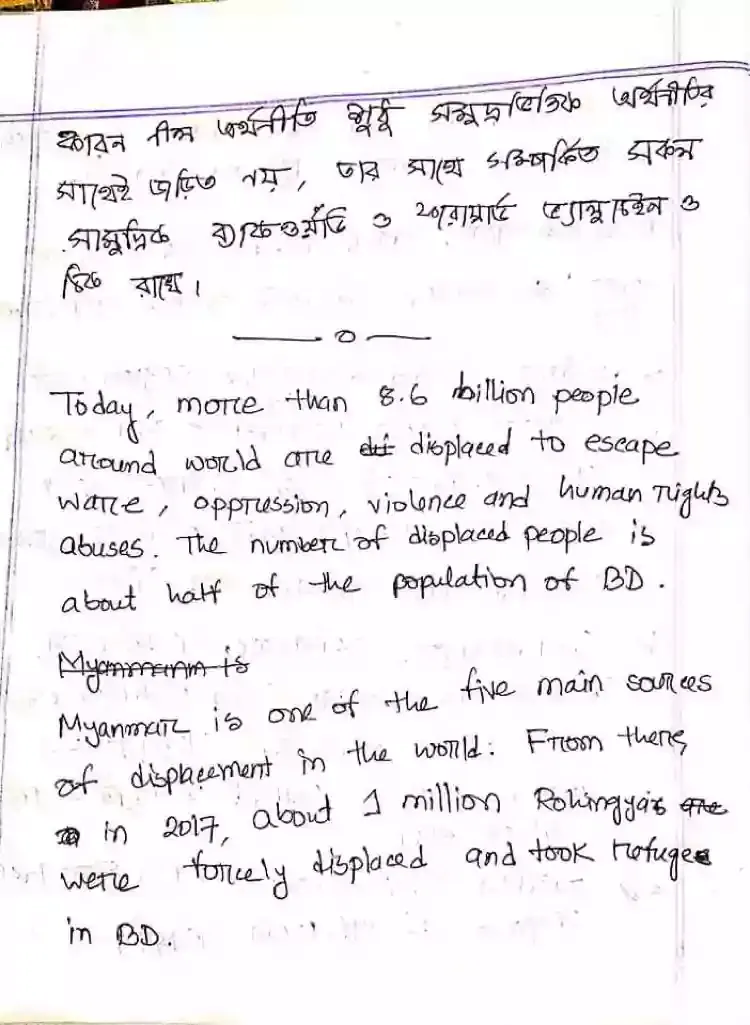 কারন নীল অর্থনীতি শুধু সমুদ্রভিত্তিক অর্থনীতির
সাথেই জড়িত নয়, তার সাথে সম্পর্কিত সকল
সামুদ্রিক ব্যাকওয়ার্ড ও ফরোয়ার্ড ভ্যালুচেইন ও
ঠিক রাখে।
Today, more than 8.6 billion people
around world are displaced to escape
ware, oppression, violence and human rights
abuses. The number of displaced people is
about half of the population of BD.
Myanmar is one of the five main sources
of displacement in the world. From there,
in 2017, about 1 million Rohingyais
were forcely displaced and took refuge
in BD.